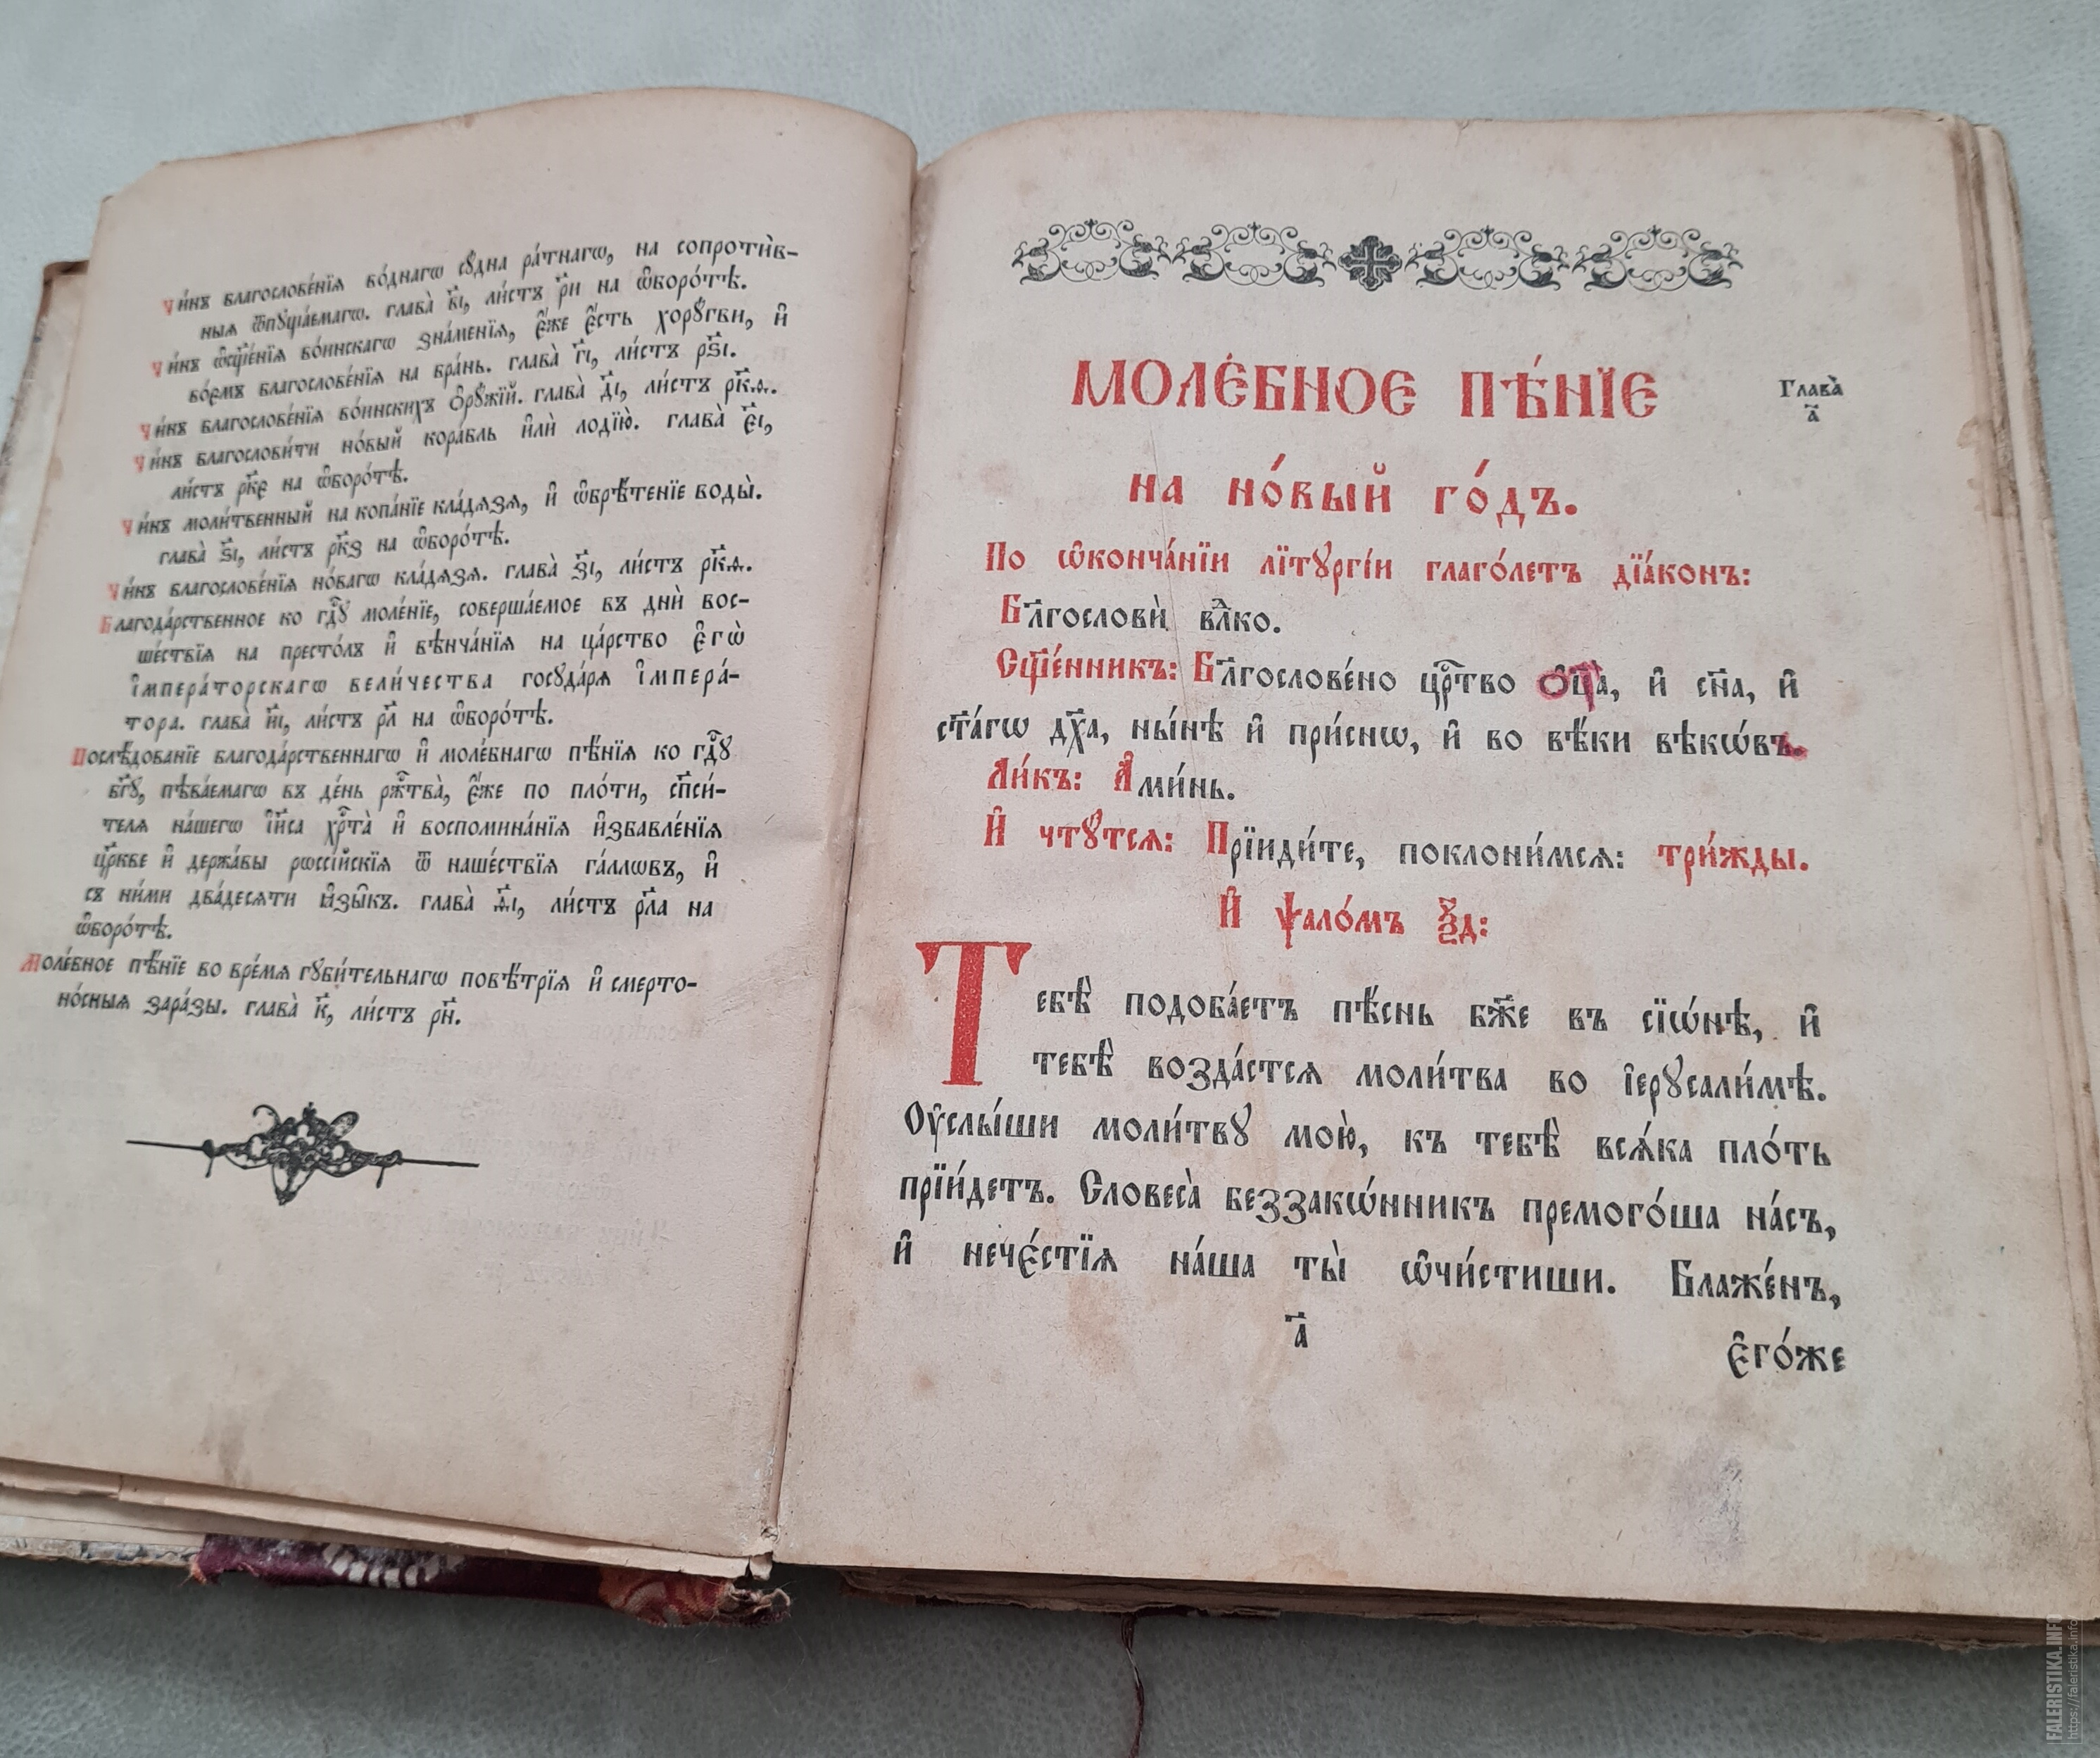 Чи́нъ благослове́нїѧ во́днагѡ сꙋ́дна ра́тнагѡ, на сопроти̑в-
ныѧ ѿпꙋща́емагѡ. глава̀ в҃і, ли́стъ р҃и на ѡ҆боро́тѣ.
Чи́нъ ѡ҆сщ҃е́нїѧ во́инскагѡ зна́менїѧ, є҆́же є҆́сть хорꙋ́гви, и҆
во́емъ благослове́нїѧ на бра́нь. глава̀ г҃і, ли́стъ рѕ҃і.
Чи́нъ благослове́нїѧ во́инскихъ ѻ҆рꙋ́жїй. глава̀ д҃і, ли́стъ рк҃ѳ.
Чи́нъ благослови́ти но́вый кора́бль и҆лѝ лодїю̀. глава̀ є҃і,
ли́стъ рк҃є на ѡ҆боро́тѣ.
Чи́нъ моли́твенный на копа́нїе кла́дѧзѧ, и҆ ѡ҆брѣ́тенїе воды̀.
глава̀ ѕ҃і, ли́стъ рк҃з на ѡ҆боро́тѣ.
Чи́нъ благослове́нїѧ но́вагѡ кла́дѧзѧ. глава̀ з҃і, ли́стъ рк҃ѳ.
Благода́рственное ко гдⷭ҇ꙋ моле́нїе, соверша́емое въ днѝ вос-
ше́ствїѧ на престо́лъ и҆ вѣнча́нїѧ на ца́рство є҆гѡ̀
і҆мпера́торскагѡ вели́чества госꙋда́рѧ і҆мпера́-
тора. глава̀ и҃і, ли́стъ р҃л на ѡ҆боро́тѣ.
Послѣ́дованїе благода́рственнагѡ и҆ моле́бнагѡ пѣ́нїѧ ко гдⷭ҇ꙋ
бг҃ꙋ, пѣва́емагѡ въ де́нь ржⷭ҇тва̀, є҆́же по пло́ти, сп҃си́-
телѧ на́шегѡ і҆и҃са хрⷭ҇та̀ и҆ воспомина́нїѧ и҆збавле́нїѧ
цр҃кве и҆ держа́вы рѡссі́йскїѧ ѿ наше́ствїѧ га́ллѡвъ, и҆
съ ни́ми два́десѧти ꙗ҆зы̑къ. глава̀ ѳ҃і, ли́стъ рл҃а на
ѡ҆боро́тѣ.
Моле́бное пѣ́нїе во вре́мѧ гꙋби́тельнагѡ повѣ́трїѧ и҆ смерто-
но́сныѧ зара́зы. глава̀ к҃, ли́стъ рн҃.
МОЛЕ́БНОЕ ПѢ́НЇЕ
Глава̀
а҃
на но́вый го́дъ.
По ѡ҆конча́нїи лїтꙋргі́и глаго́летъ дїа́конъ:
Бл҃гословѝ вл҇ⷣко.
Сщ҃е́нникъ: Бл҃гослове́но црⷭ҇тво ѻ҆ц҃а̀, и҆ сн҃а, и҆
ст҃а́гѡ дх҃а, ны́нѣ и҆ при́снѡ, и҆ во вѣ́ки вѣкѡ́въ.
Ли́къ: А҆ми́нь.
И҆ чтꙋ́тсѧ: Прїиди́те, поклони́мсѧ: три́жды.
И҆ ѱало́мъ ѯ҃д:
Тебѣ̀ подоба́етъ пѣ́снь бж҃е въ сїѡ́нѣ, и҆
тебѣ̀ возда́стсѧ моли́тва во і҆ерꙋсали́мѣ.
Оу҆слы́ши моли́твꙋ мою̀, къ тебѣ̀ всѧ́ка пло́ть
прїи́детъ. Словеса̀ беззакѡ́нникъ премого́ша на́съ,
и҆ нечє́стїѧ на́ша ты̀ ѡ҆чи́стиши. Блаже́нъ,
а҃
є҆го́же
FALERISTIKA.INFO
https://faleristika.info